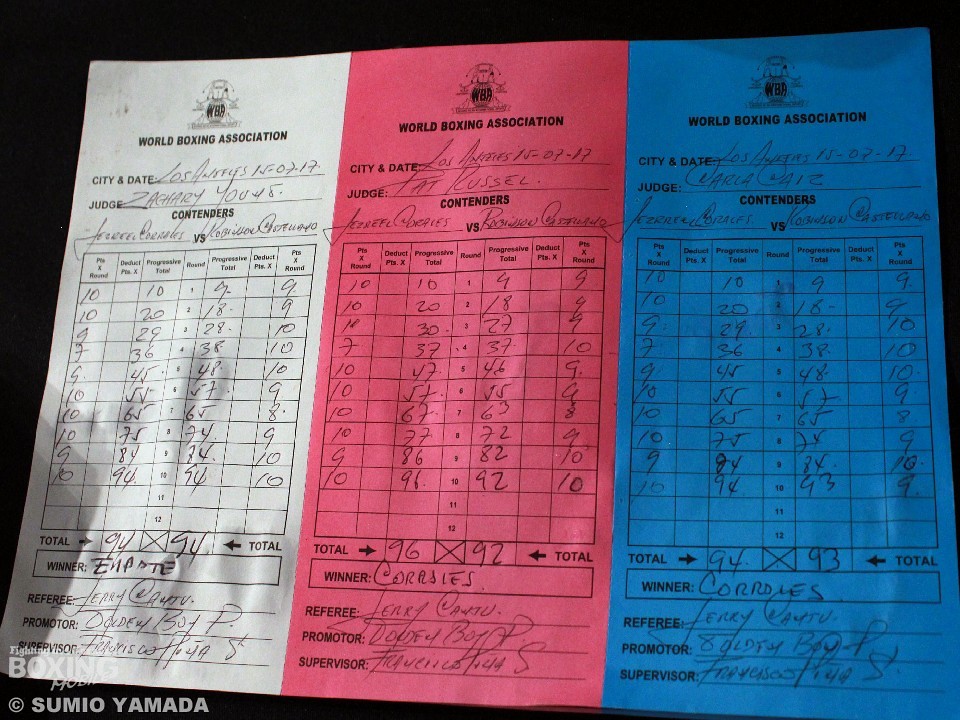 WBA
WORLD BOXING ASSOCIATION
CITY & DATE: LOS ANGELES 15-07-17
JUDGE ZACHARY YOUNG.
CONTENDERS
JEZREEL CORRALES VS ROBINSON CASTELLANO
Pts X Round Deduct Pts. X Progressive Total Round Progressive Total Deduct Pts. X Pts X Round
10 10 1 9 9
10 20 2 18- 9
9 29 3 28- 10
7 36 4 38 10
9 45 5 48 10
10 55 6 57 9
10 65 7 65 8
10 75 8 74 9
9 84 9 84 10
10 94 10 94 10
11
12
TOTAL 94 94 TOTAL
WINNER: EMPATE
REFEREE: JERRY CANTU
PROMOTOR: GOLDEN BOY P.
SUPERVISOR: FRANCISCO
WBA
WORLD BOXING ASSOCIATION
CITY & DATE: LOS ANGELES 15-07-17
JUDGE: PAT RUSSEL.
CONTENDERS
JEZREEL CORALES VS ROBINSON CASTELLANO
Pts X Round Deduct Pts. X Progressive Total Round Progressive Total Deduct Pts. X Pts X Round
10 10 1 9 9
10 20 2 18 9
10 30 3 27 9
7 37 4 37 10
10 47 5 46 9
10 57 6 55 9
10 67 7 63 8
10 77 8 72 9
9 86 9 82 10
10 96 10 92 10
11
12
TOTAL 96 92 TOTAL
WINNER: CORRALES.
REFEREE: JERRY CANTU.
PROMOTOR: GOLDEN BOY P.
SUPERVISOR: FRANCISCO
WBA
WORLD BOXING ASSOCIATION
CITY & DATE: LOS ANGELES 15-07-17
JUDGE: CARLA CAIZ
CONTENDERS
JEZREEL CORALES VS ROBINSON CASTELLANO
Pts X Round Deduct Pts. X Progressive Total Round Progressive Total Deduct Pts. X Pts X Round
10 10 1 9 9
10 20 2 18- 9
9 29 3 28- 10
7 36 4 38 10
9 45 5 48 10
10 55 6 57 9
10 65 7 65 8
10 75 8 74 9
9 84 9 84 10
10 94 10 93 9
11
12
TOTAL 94 93 TOTAL
WINNER: CORRALES
REFEREE: JERRY CANTU
PROMOTOR: GOLDEN BOY P
SUPERVISOR: FRANCISCO
BOXING
MOBILE
© SUMIO YAMADA